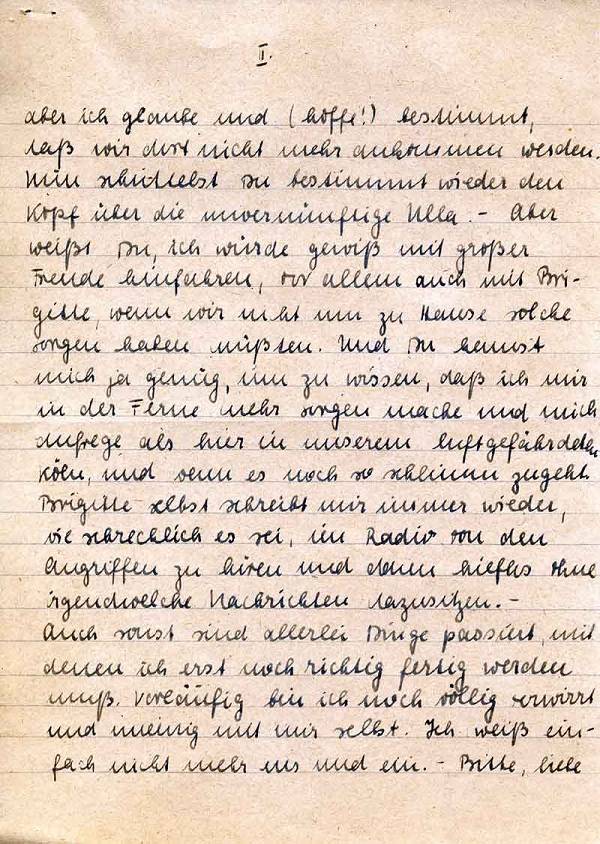 II.
aber ich glaube und (hoffe!) bestimmt,
daß wir dort nicht mehr ankommen werden.
Nun schüttelst Du bestimmt wieder den
Kopf über die unvernünftige Ulla. – Aber
weißt Du, ich würde gewiß mit großer
Freude hinfahren, vor allem auch mit Bri-
gitte, wenn wir nicht um zu Hause solche
Sorgen haben müßten. Und Du kennst
mich ja genug, um zu wissen, daß ich mir
in der Ferne mehr Sorgen mache und mich
aufrege als hier in unserem luftgefährdeten
Köln, und wenn es noch so schlimm zugeht.
Brigitte selbst schreibt mir immer wieder,
wie schrecklich es sei, im Radio von den
Angriffen zu hören und dann ohne
irgendwelche Nachrichten dazusitzen. –
Auch sonst sind allerlei Dinge passiert, mit
denen ich erst noch richtig fertig werden
muß. Vorläufig bin ich noch völlig verwirrt
und uneinig mit mir selbst. Ich weiß ein-
fach nicht mehr ein und ein. – Bitte, liebe